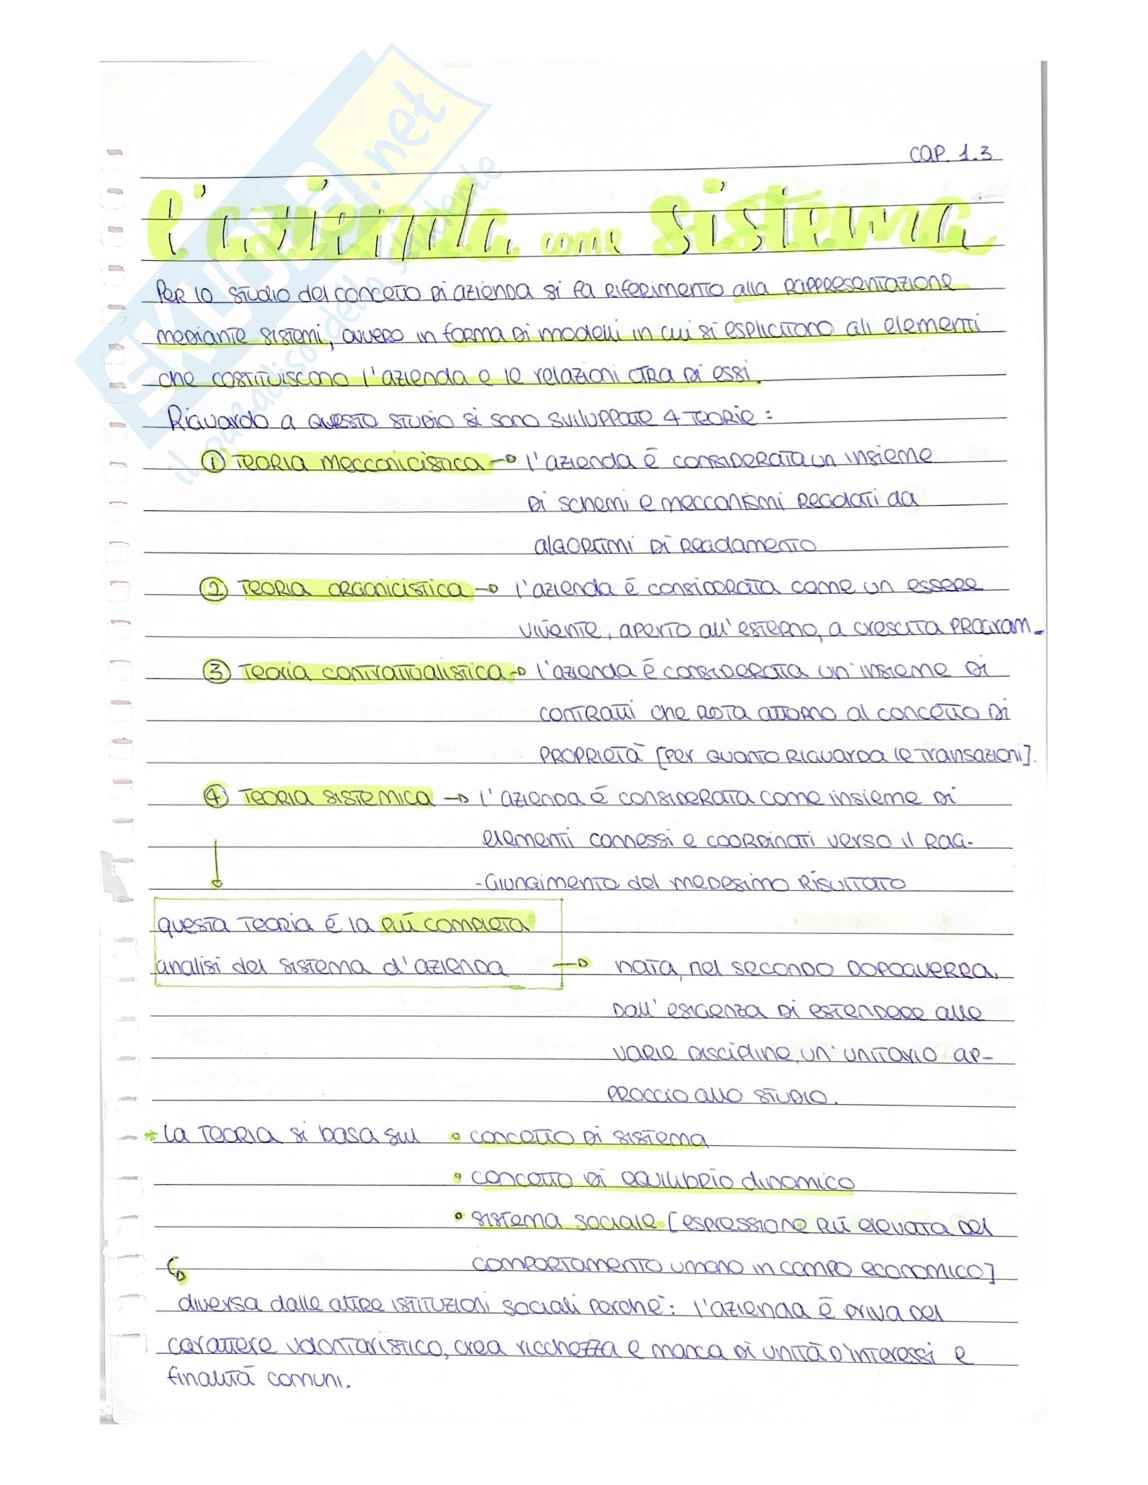 CAP. 1.3
l'azienda come sistema
PER lO STUDIO del CONCETTO DI AZIENDA SI FA RIFERIMENTO alla RAPPRESENTAZIONE
MEDIANTE SISTEMI, OVVERO in FORMA DI MODELLI in cui si ESPLICITONO gli elementi
che COSTITUISCONO l'azienda e le relazioni TRA DI essi.
RIGUARDO a QUESTO STUDIO si sono SVILUPPATE 4 TEORIE:
① TEORIA MECCANICISTICA → l'azienda è CONSIDERATA un insieme
DI schemi e meccanismi REGOLATI da
algoritmi DI REGOLAMENTO
② TEORIA ORGANICISTICA → l'azienda è CONSIDERATA come un essere
VIVENTE, APERTO all'esterno, a crescita PROGRAM-
③ Teoria contrattualistica → l'azienda è CONSIDERATA un'insieme DI
CONTRATTI che ROTA attorno al concetto DI
PROPRIETÀ [PER QUANTO RIGUARDA le TRANSAZIONI].
④ TEORIA SISTEMICA → l'azienda è CONSIDERATA come insieme DI
elementi connessi e COORDINATI verso il RAG-
-GIUNGIMENTO del MEDESIMO RISULTATO
questa TEORIA è la PIÙ COMPLETA
analisi del SISTEMA d'azienda → NATA, nel SECONDO DOPOGUERRA,
Dall'ESIGENZA DI ESTENDERE alle
VARIE DISCIPLINE, un'UNITARIO AP-
PROCCIO allo STUDIO.
* la TEORIA si basa sul • CONCETTO DI SISTEMA
• CONCETTO DI EQUILIBRIO dinamico
• SISTEMA sociale [espressione PIÙ elevata del
COMPORTAMENTO umano in campo economico]
diversa dalle altre ISTITUZIONI sociali perchè: l'azienda è PRIVA del
carattere volontaristico, crea ricchezza e manca DI unità D'interessi e
finalità comuni.
SKUOLA.net
il paradiso dello studente